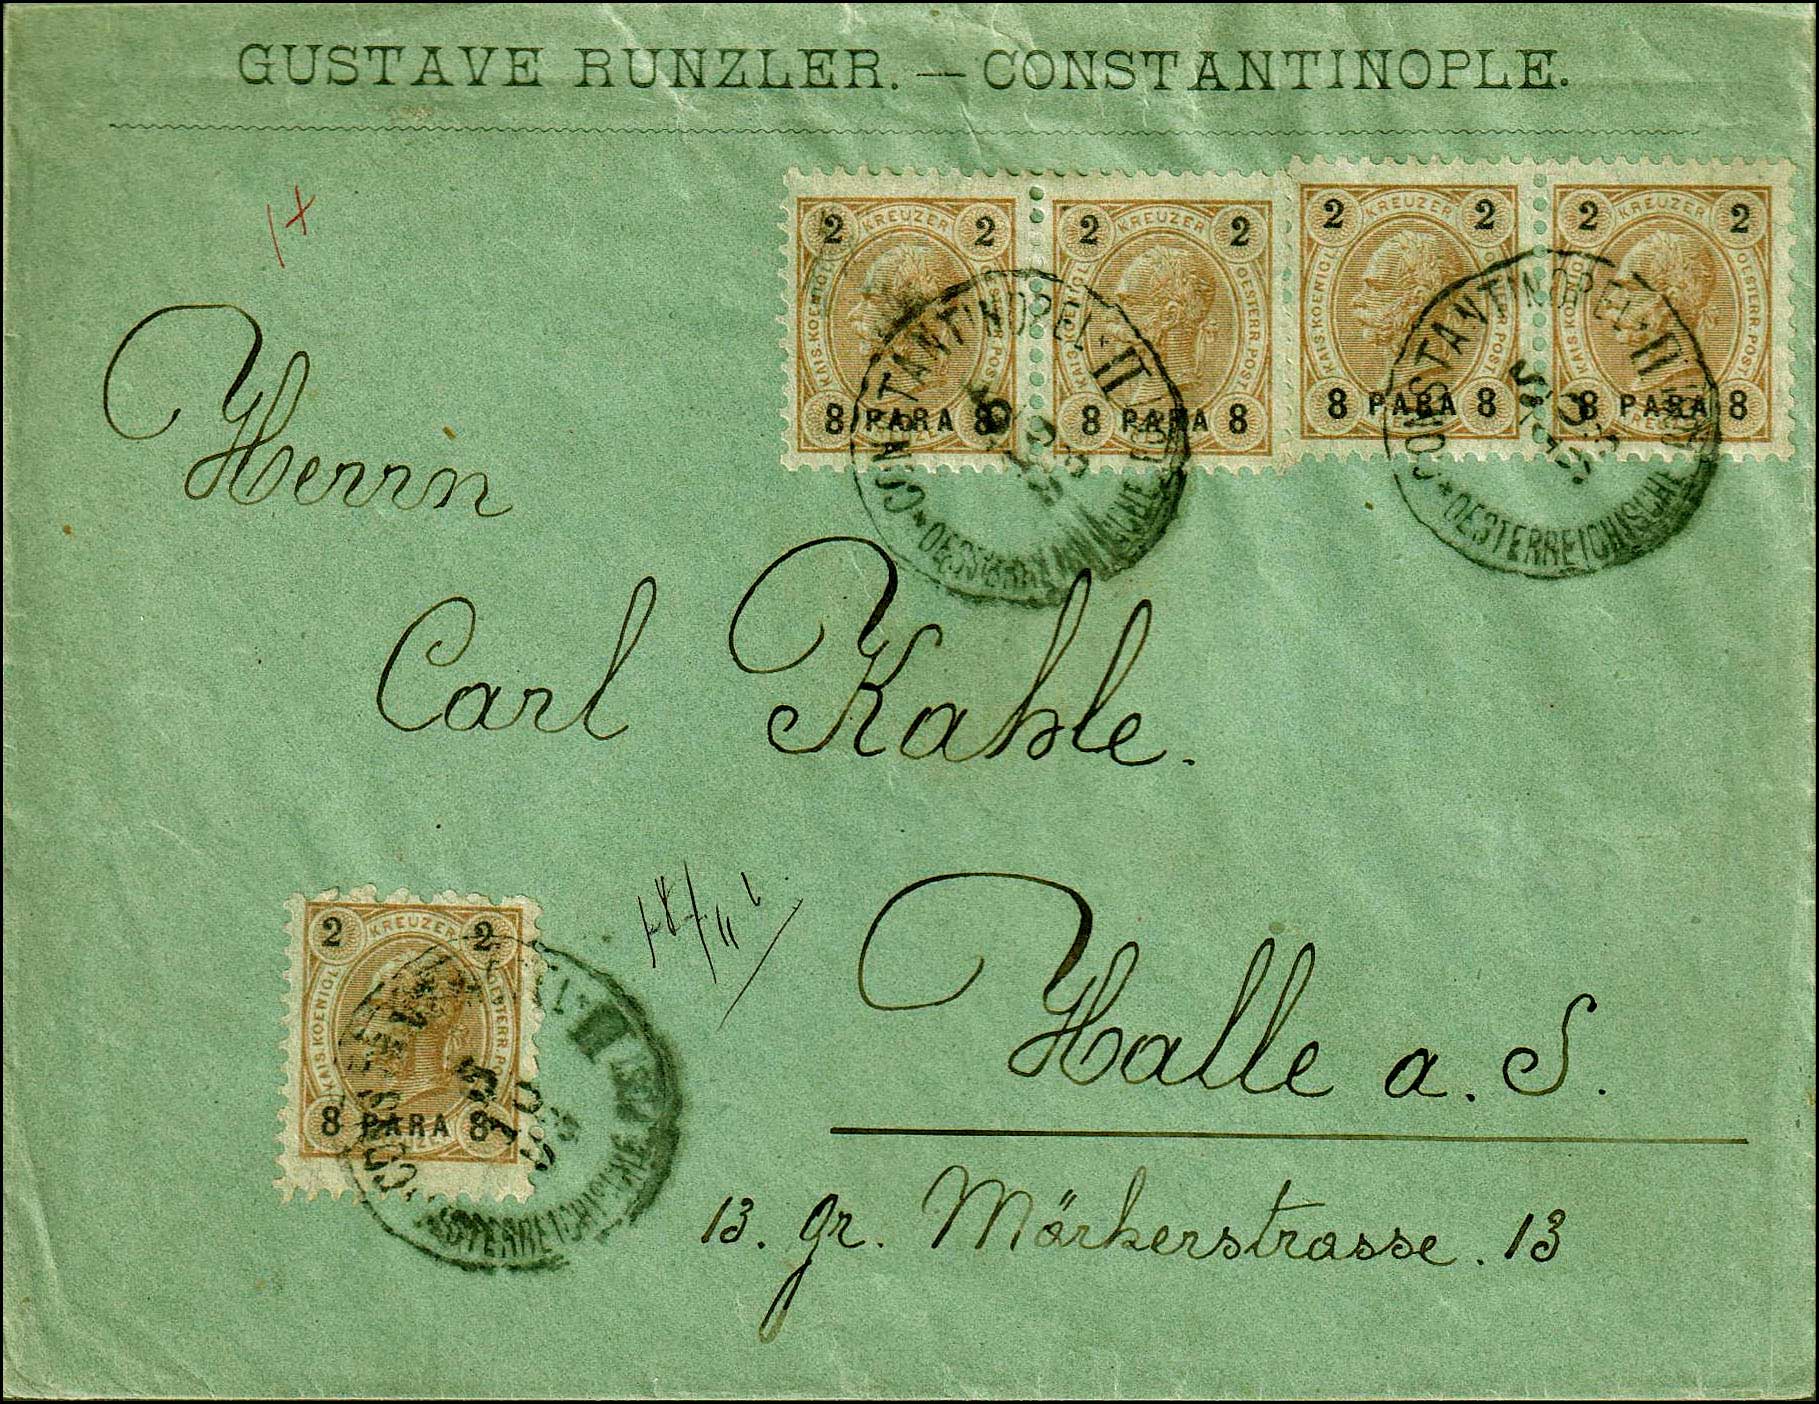 GUSTAVE RUNZLER. — CONSTANTINOPLE.
2 KREUZER 2
KAIS. KOENIGL. OESTERR. POST
8 PARA 8
2 KREUZER 2
KAIS. KOENIGL. OESTERR. POST
8 PARA 8
2 KREUZER 2
KAIS. KOENIGL. OESTERR. POST
8 PARA 8
2 KREUZER 2
KAIS. KOENIGL. OESTERR. POST
8 PARA 8
CONSTANTINOPEL·II
OESTERREICHISCHE
CONSTANTINOPEL·II
OESTERREICHISCHE
Herrn
Carl Kahle.
Halle a. S.
13. gr. Märkerstrasse. 13
2 KREUZER 2
KAIS. KOENIGL. OESTERR. POST
8 PARA 8
OESTERREICHISCHE